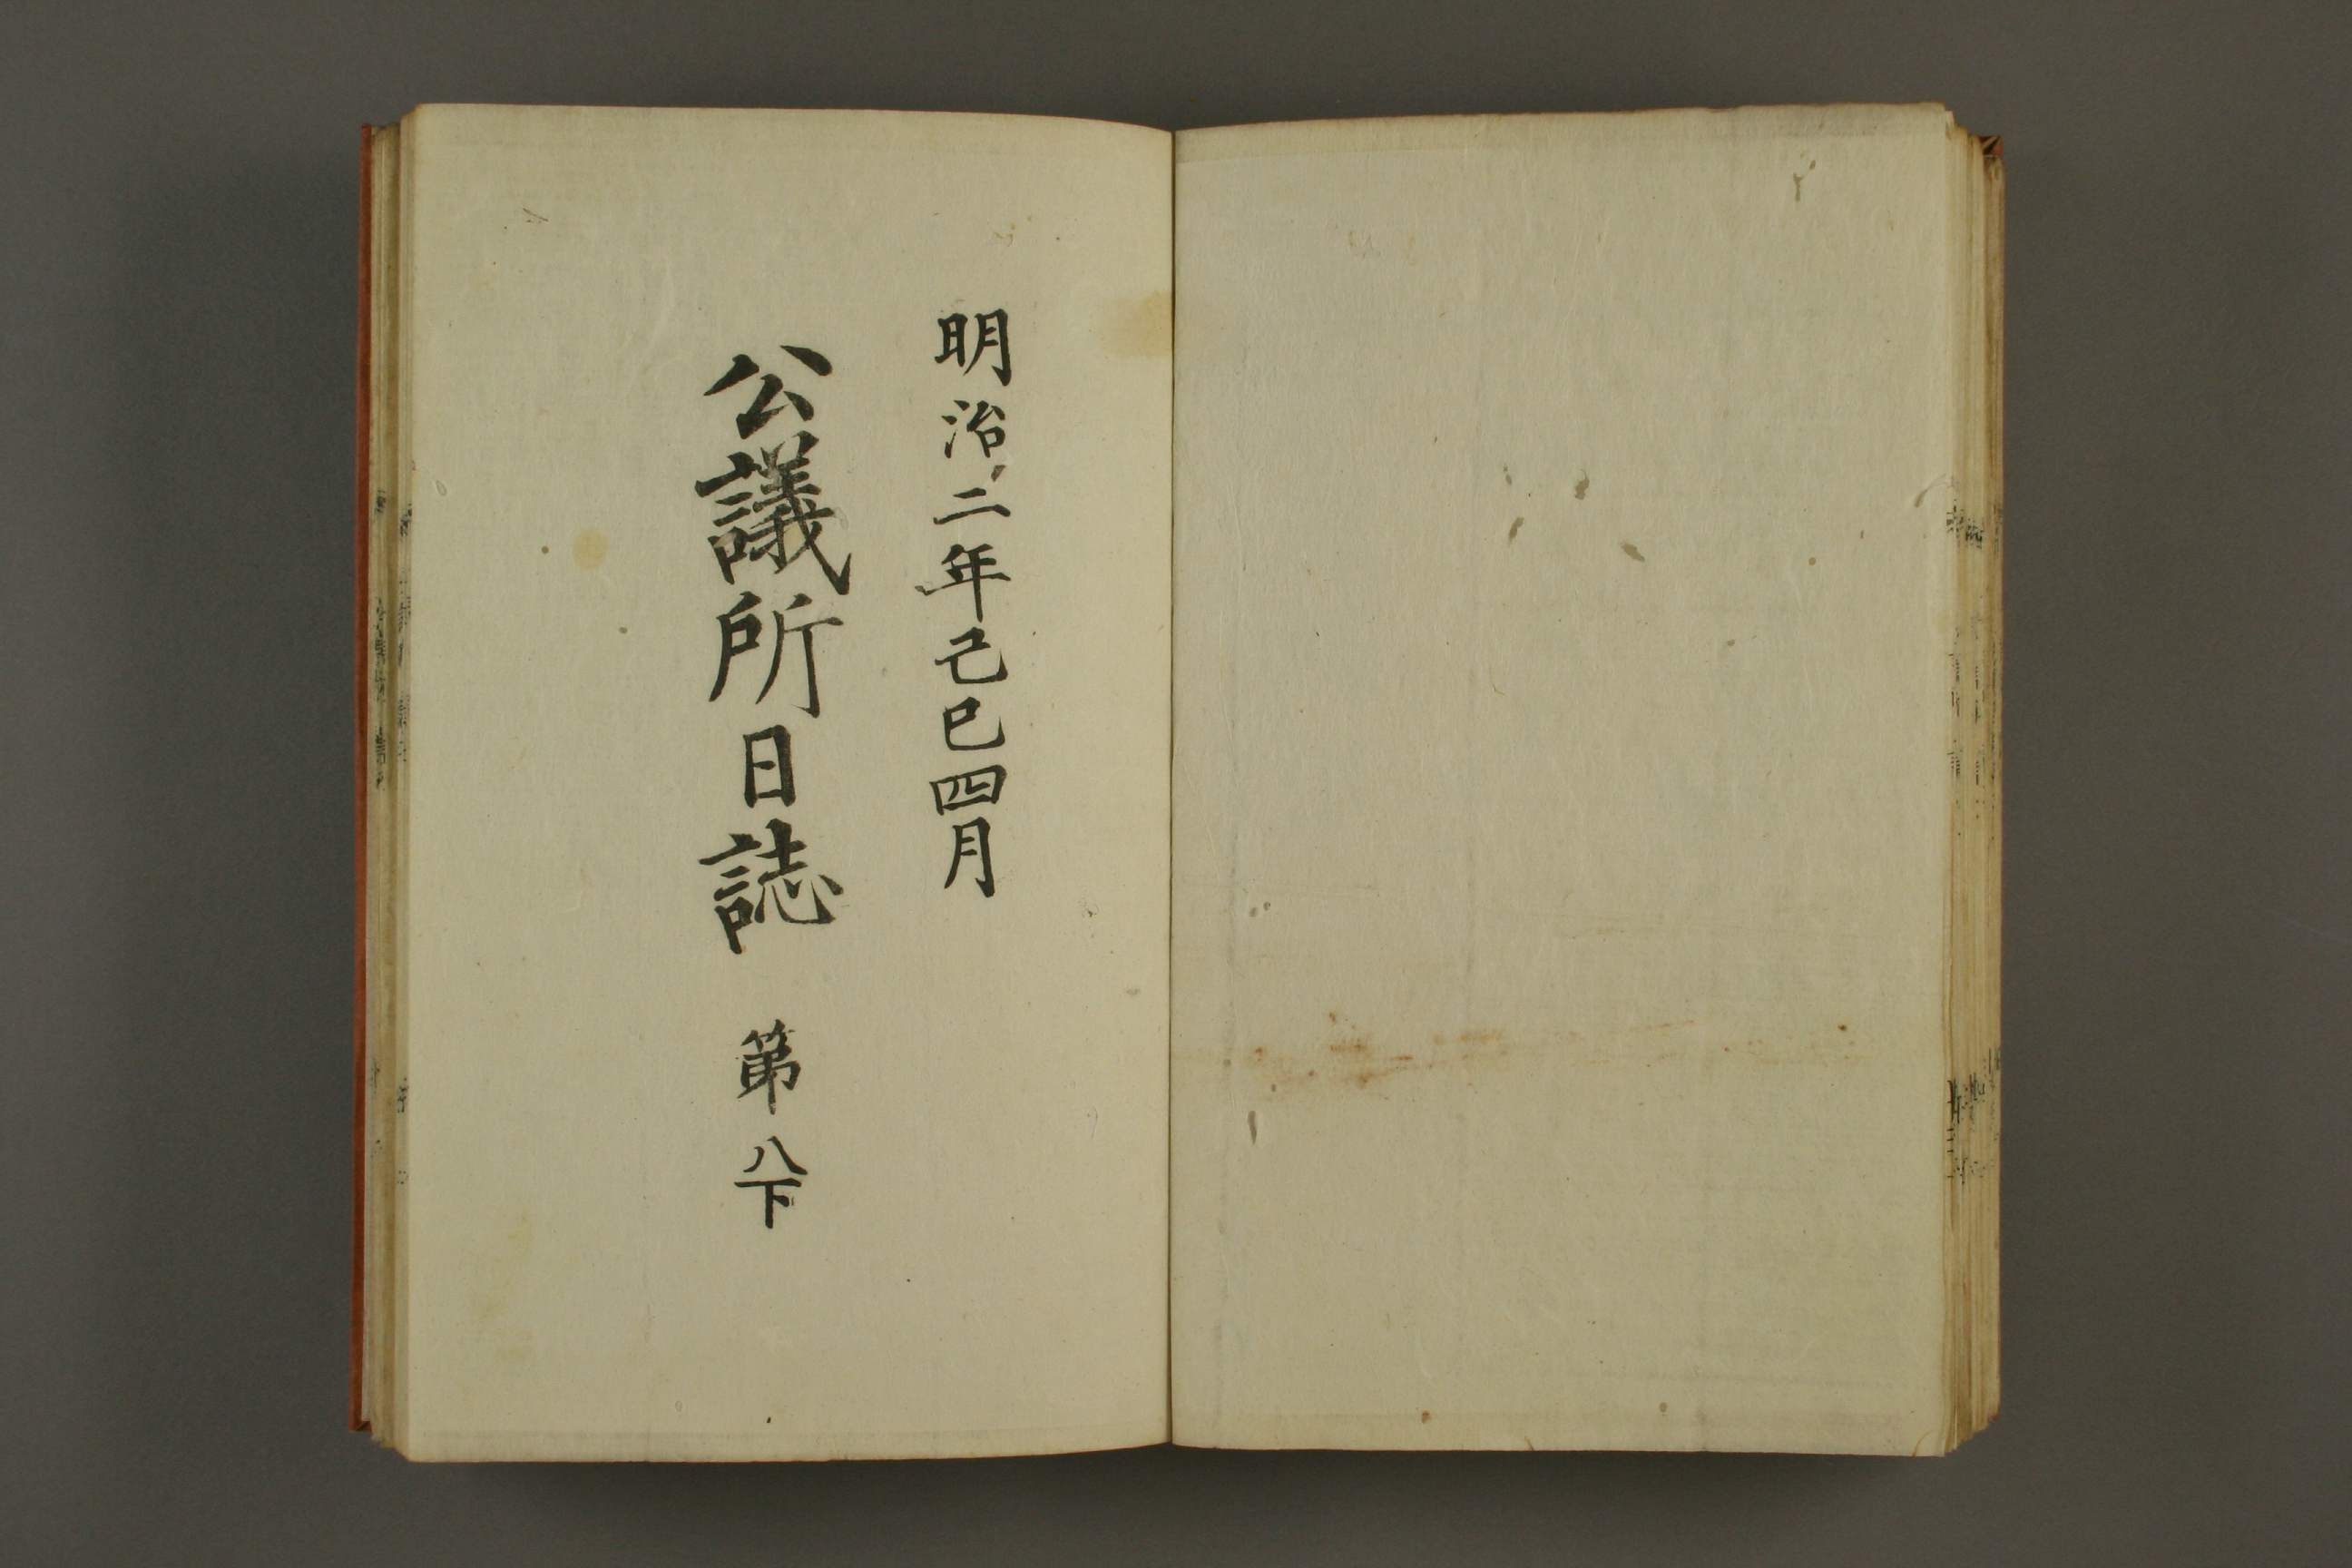 明治二年己巳四月
公議所日誌 第八下